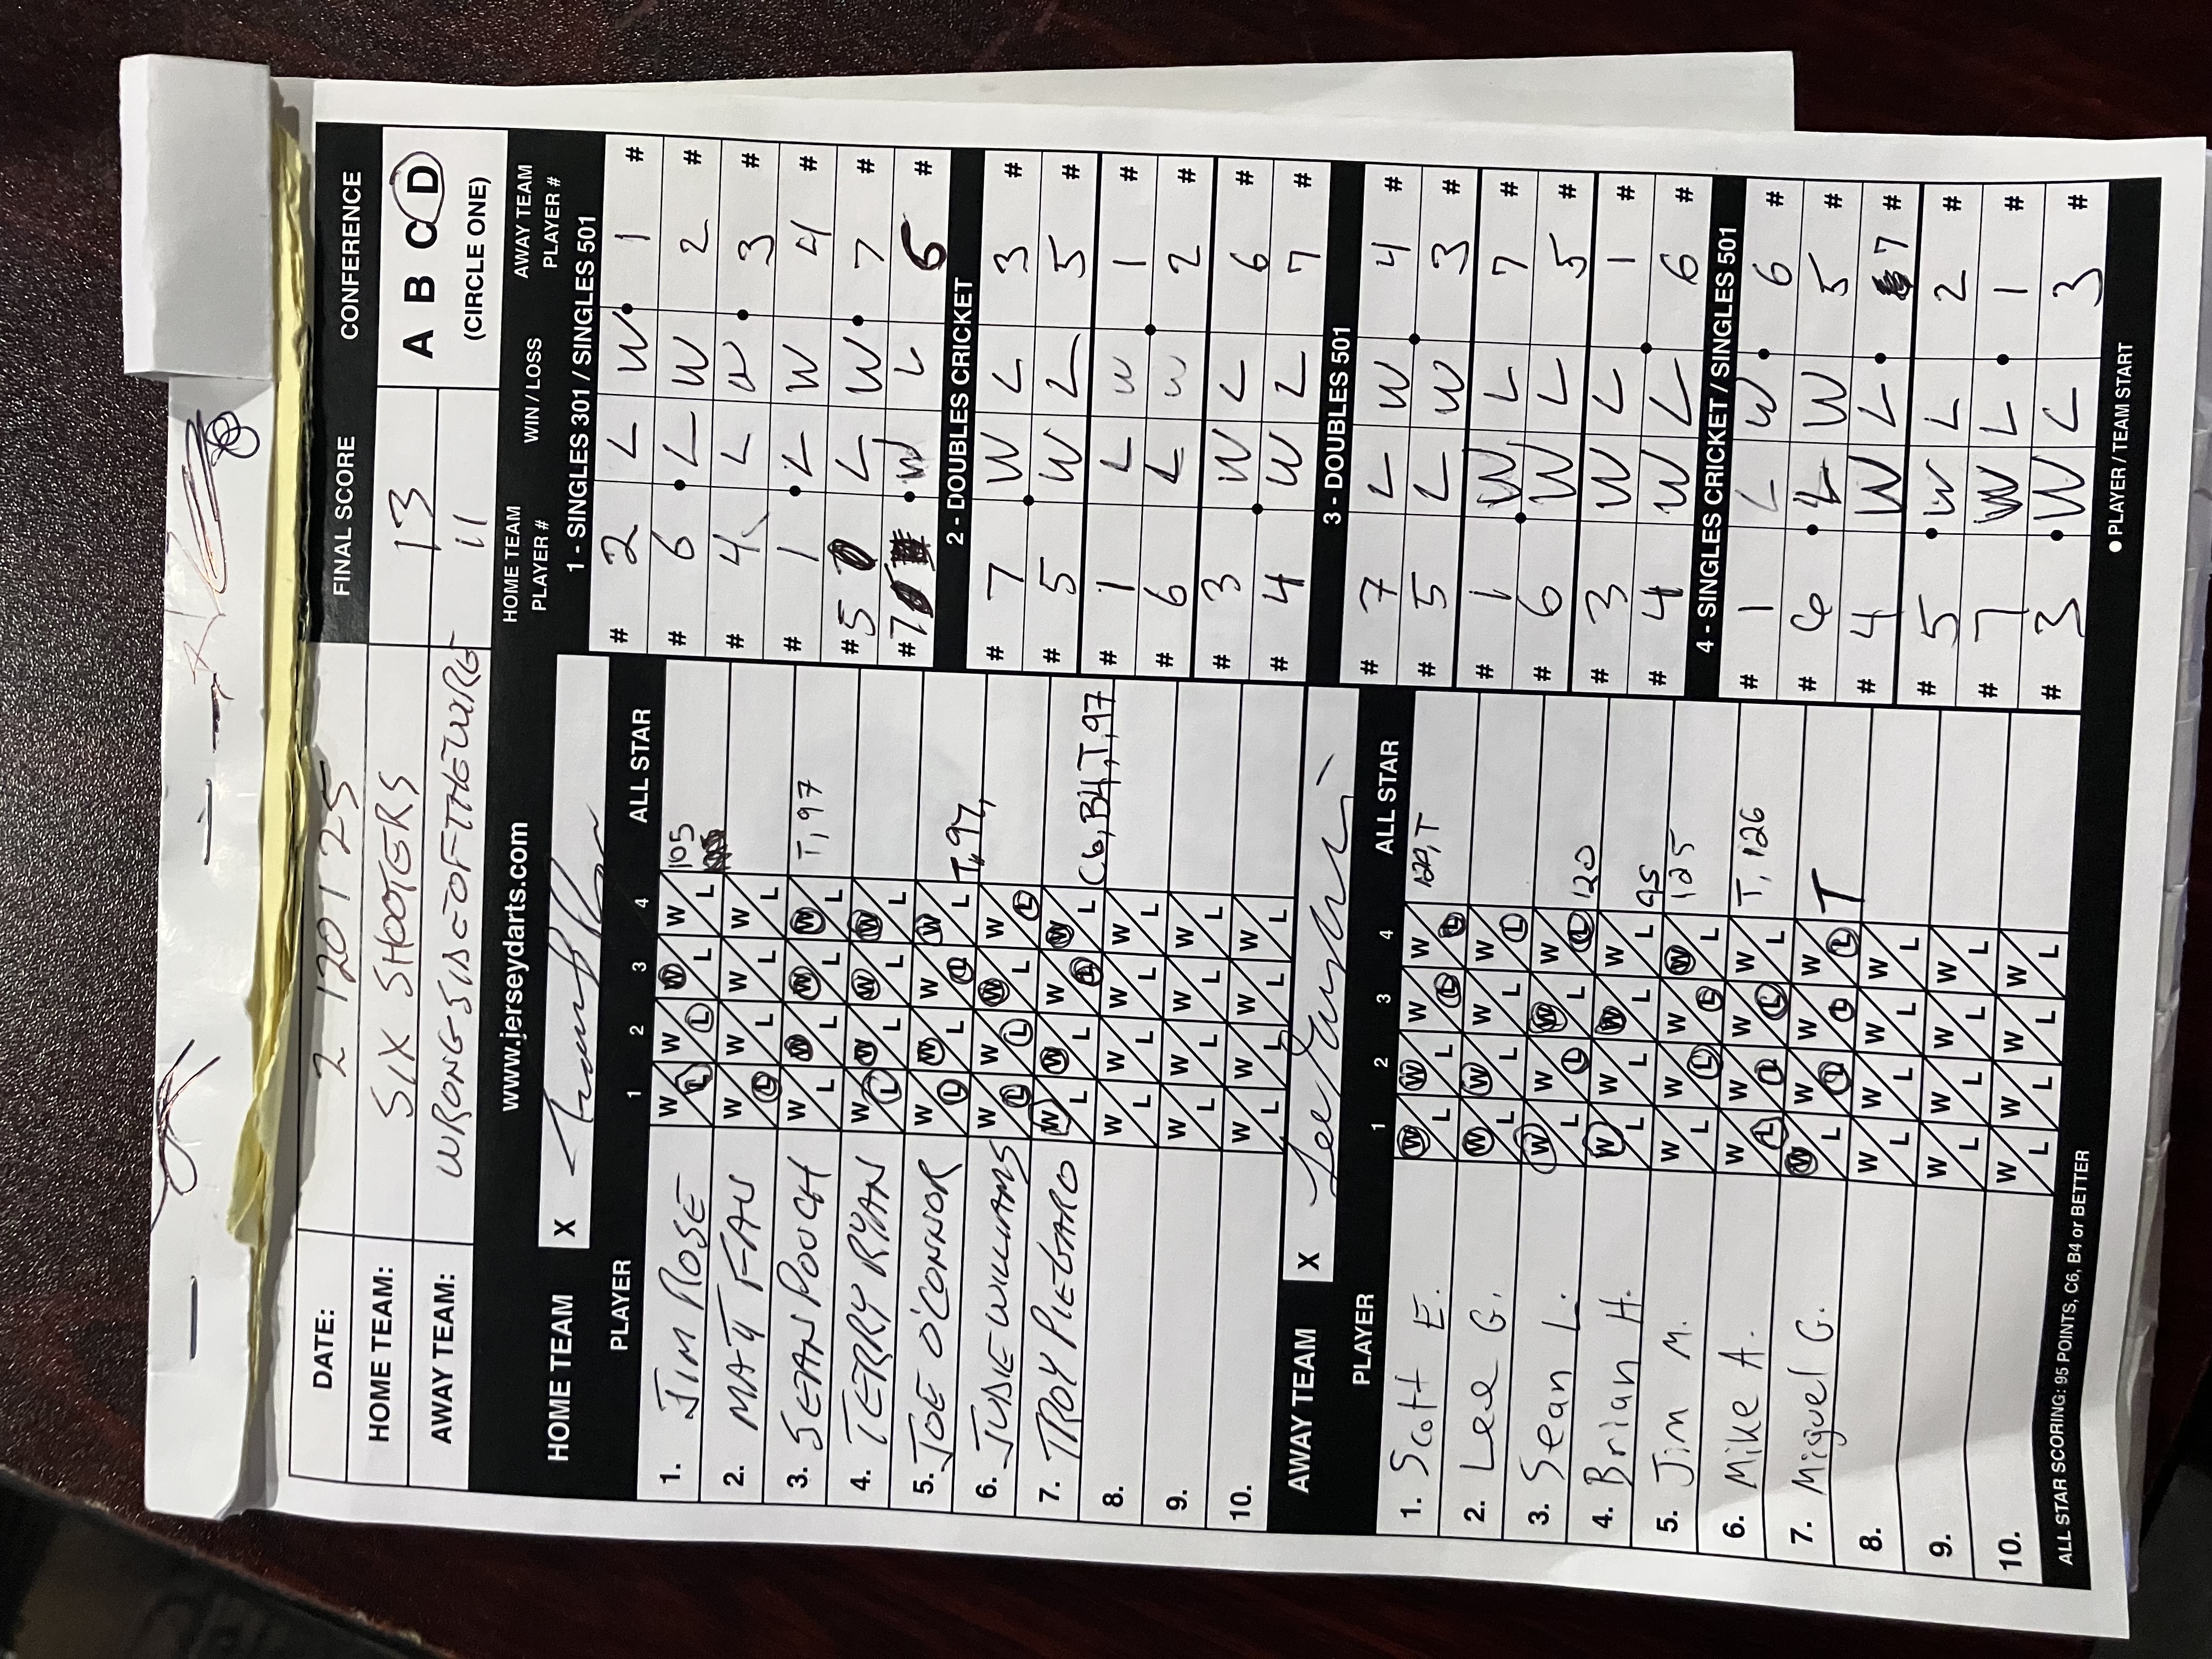 DATE: 2 / 20 / 25 FINAL SCORE CONFERENCE
HOME TEAM: SIX SHOOTERS 13 A B C D
AWAY TEAM: WRONG SIDE OF THE WIRE 11 (CIRCLE ONE)
www.jerseydarts.com
HOME TEAM X
PLAYER 1 2 3 4 ALL STAR
1. JIM ROSE W L W L W L W L 105
2. MATT FAU W L W L W L W L
3. SEAN POUCH W L W L W L W L T, 97
4. TERRY RYAN W L W L W L W L
5. JOE O'CONNOR W L W L W L W L T, 97,
6. JUDIE WILLIAMS W L W L W L W L
7. TROY PIEGARO W L W L W L W L C6, B4, T, 97
8. W L W L W L W L
9. W L W L W L W L
10. W L W L W L W L
AWAY TEAM X
PLAYER 1 2 3 4 ALL STAR
1. Scott E. W L W L W L W L 120, T
2. Lee G. W L W L W L W L
3. Sean L. W L W L W L W L 120
4. Brian H. W L W L W L W L 95
5. Jim M. W L W L W L W L 125
6. Mike A. W L W L W L W L T, 126
7. Miguel G. W L W L W L W L T
8. W L W L W L W L
9. W L W L W L W L
10. W L W L W L W L
ALL STAR SCORING: 95 POINTS, C6, B4 or BETTER
HOME TEAM PLAYER # WIN / LOSS AWAY TEAM PLAYER #
1 - SINGLES 301 / SINGLES 501
# 2 L W 1 #
# 6 L W 2 #
# 4 L W 3 #
# 1 L W 4 #
# 5 L W 7 #
# 7 W L 6 #
2 - DOUBLES CRICKET
# 7 W L 3 #
# 5 W L 5 #
# 1 L W 1 #
# 6 L W 2 #
# 3 W L 6 #
# 4 W L 7 #
3 - DOUBLES 501
# 7 L W 4 #
# 5 L W 3 #
# 1 W L 7 #
# 6 W L 5 #
# 3 W L 1 #
# 4 W L 6 #
4 - SINGLES CRICKET / SINGLES 501
# 1 L W 6 #
# 6 L W 5 #
# 4 W L 7 #
# 5 W L 2 #
# 7 W L 1 #
# 3 W L 3 #
● PLAYER / TEAM START